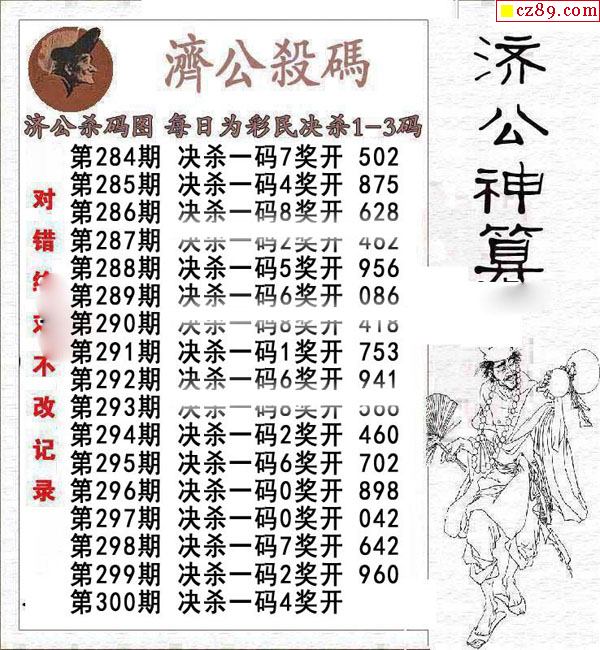 cz89.com
濟公殺碼
济公杀码图 每日为彩民决杀1-3码
第284期 决杀一码7奖开 502
第285期 决杀一码4奖开 875
第286期 决杀一码8奖开 628
第287期 决杀一码2奖开 462
第288期 决杀一码5奖开 956
第289期 决杀一码6奖开 086
第290期 决杀一码8奖开 418
第291期 决杀一码1奖开 753
第292期 决杀一码6奖开 941
第293期 决杀一码8奖开
第294期 决杀一码2奖开 460
第295期 决杀一码6奖开 702
第296期 决杀一码0奖开 898
第297期 决杀一码0奖开 042
第298期 决杀一码7奖开 642
第299期 决杀一码2奖开 960
第300期 决杀一码4奖开
对错
不改记录
济公神算